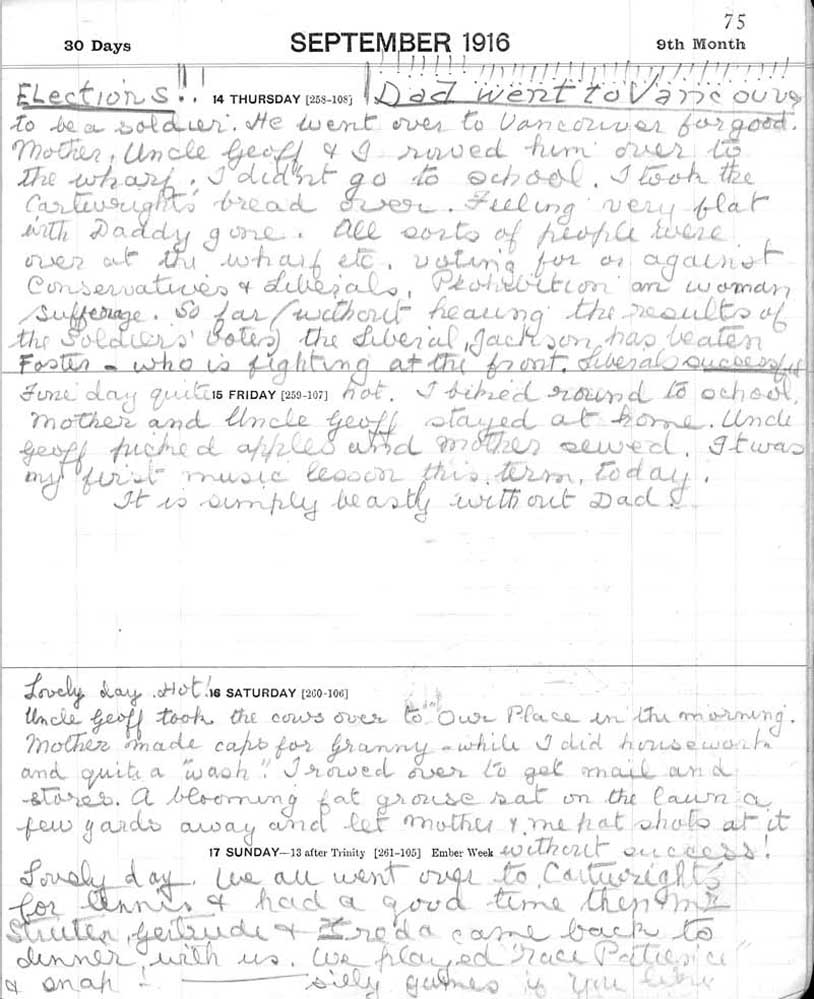 75
30 Days SEPTEMBER 1916 9th Month
Elections!! 14 THURSDAY [258-108] Dad went to Vancouve
to be a soldier. He went over to Vancouver for good.
Mother, Uncle Geoff & I rowed him over to
the wharf. I didn't go to school. I took the
Cartwrights' bread over. Feeling very flat
with Daddy gone. All sorts of people were
over at the wharf etc. voting for or against
Conservatives & Liberals, Prohibition an woman
Sufferage. So far (without hearing the results of
the Soldiers' Votes) the Liberal, Jackson, has beaten
Foster - who is fighting at the front. Liberals successful
Fine day quite 15 FRIDAY [259-107] hot. I biked round to school.
Mother and Uncle Geoff stayed at home. Uncle
Geoff picked apples and Mother sewed. It was
my first music lesson this term, today.
It is simply beastly without Dad!
Lovely day. Hot! 16 SATURDAY [260-106]
Uncle Geoff took the cows over to "Our Place in the morning.
Mother made caps for Granny - while I did housework
and quite a "wash". I rowed over to get mail and
stores. A blooming fat grouse sat on the lawn a
few yards away and let Mother & me hat shots at it
17 SUNDAY—13 after Trinity [261-105] Ember Week without success!
Lovely day. We all went over to Cartwrights
for tennis & had a good time then Mr
Gertrude & came back to
dinner with us. We played "race Patience"
& snap! silly games if you like